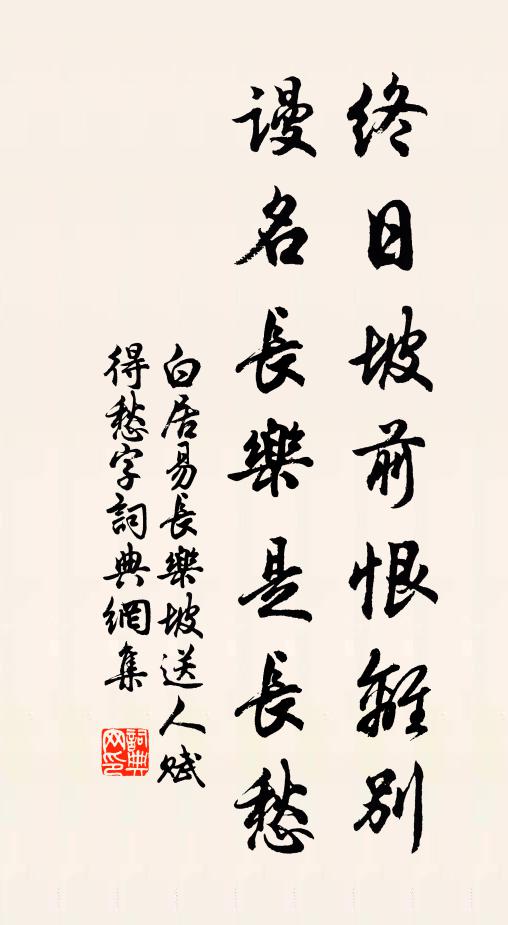 終日坡前恨離別
謾名長樂是長愁
白居易長樂坡送人賦
得愁字詞典網集
詞典
网印